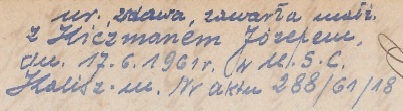 ur., wdowa, zawarła małż.
z Kiczmanem Józefem,
dn. 17.6.1961r. w U.S.C.
Kalisz-m. Nr aktu 288/61/18